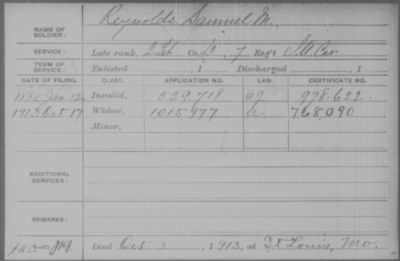 NAME OF SOLDIER: Reynolds Samuel M.
SERVICE: Late rank, Co. 7 Reg't Cav.
TERM OF SERVICE: Enlisted , 1 Discharged , 1
DATE OF FILING. CLASS. APPLICATION NO. LAW. CERTIFICATE NO.
Jan. 12 Invalid, 529.718 978.622
1913 Oct 17 Widow, 1015.977 768.090
Minor,
ADDITIONAL SERVICES:
REMARKS:
Died Oct 3, 1913, at St Louis, Mo.